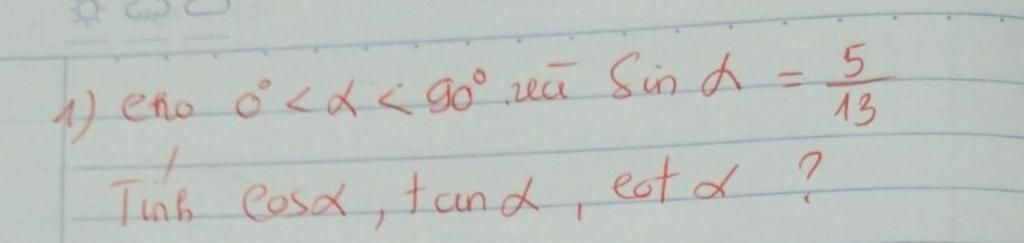 1) cho 0° < α < 90° và sin α = 5/13
Tính cosα, tan α, cot α ?